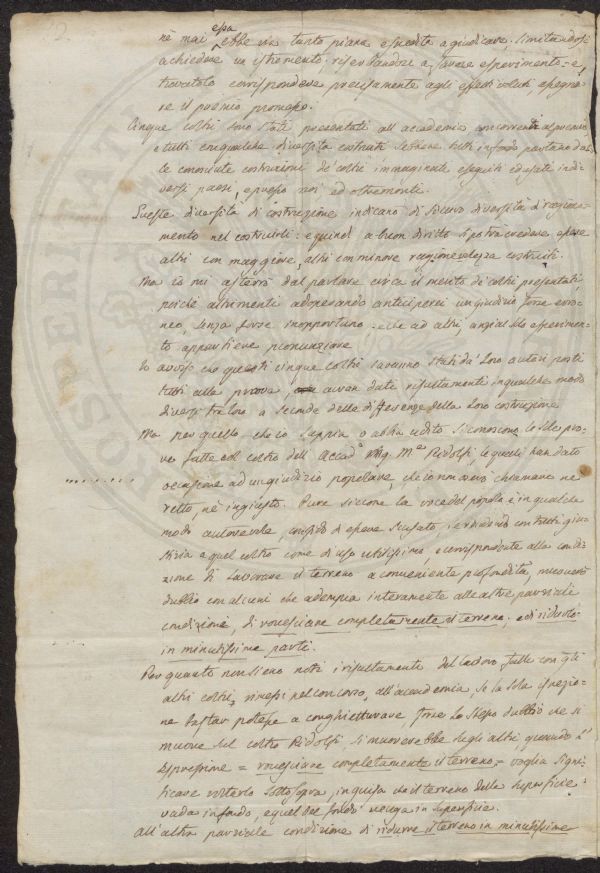 2.
essa
nè mai ebbe via tanto piana e spedita a giudicare, limitandosi
a chiedere un istromento, riserbandosi a farne esperimento = e,
trovatolo corrispondere precisamente agli effetti voluti, e pagna-
re il premio promesso.
Cinque coltri sono stati presentati all'accademia concorrendo al premio
e tutti con qualche diversità costruiti sebbene tutti in fondo partano dal-
le conosciute costruzioni de' coltri immaginate eseguiti ed usate in di-
versi paesi, e presso noi ed oltremonte.
Queste diversità di costruzione indicano di sicuro diversità di ragiona-
mento nel costruirli: e quindi a buon diritto si potrà credere, essere
altri con maggiore, altri con minore ragionevolezza costruiti.
Ma io mi asterrò dal parlare circa il merito de' coltri presentati
poichè altrimenti adoperando anticiperei un giudizio forse erro-
neo, senza forse inopportuno: e che ad altri, anzi al solo esperimen-
to appartiene pronunziare.
Io avviso che questi cinque coltri saranno stati da' loro autori posti
tutti alla prova, avran dati resultamenti in qualche modo
diversi tra loro a seconda della differenza della loro costruzione
Ma per quello che io sappia o abbia udito si conoscono le sole pro-
ve fatte col coltro dell' Accad.o Sig. M.e Ridolfi, le quali han dato
occasione ad un giudizio popolare, che io non oserò chiamare ne
retto, nè ingiusto. Pure siccome la voce del popolo è in qualche
modo autorevole, confido di essere scusato, se rendendo con tutti giu-
stizia a quel coltro come di uso utilissimo, e corrispondente alla condi-
zione di lavorare il terreno a conveniente profondità, muoverò
dubbio con alcuni che adempia interamente alle altre parziali
condizioni, di rovesciare completamente il terreno, e di ridurlo
in minutissime parti.
Per quanto non sieno noti i resultamenti del lavoro fatto con gli
altri coltri, rimessi nel concorso, all'accademia, se la sola ispezio-
ne bastar potesse a conghietturare, forse lo stesso dubbio che si
muove sul coltro Ridolfi, si muoverebbe degli altri quando l'
espressione = rovesciare completamente il terreno = voglia signi-
ficare voltarlo sottosopra, in guisa che il terreno della superficie
vada in fondo, e quel del fondo venga in superficie.
All'altra parziale condizione di ridurre il terreno in minutissime